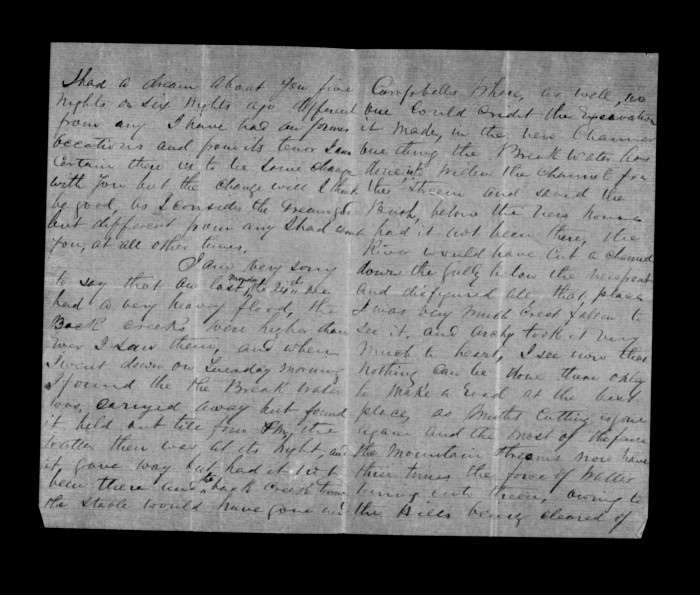 I had a dream about you five
Nights or six Nights ago different
from any I have had on former
occations and from its tenor I am
Certain there is to be some change
with you but the change will I think
be good, as I consider the dream
but different from any I had
you, at all other times.
I am very sorry
to say that on last monday the 24th we
had a very heavy flood, the
Back creeks were higher than
ever I saw them, and when
I went down on Tuesday morning
I found the the Break water
was, carryed away but found
it held out till four the
watter then was at its hight, and
it gave way but had it not
been there the back creek from
the Stable would have gone in
Campbells place, as well, no
one could credit the Excavation
it made, in the new Channel
one thing the Break Water has
done it widen the channel for
the Stream and saved the
Bush, below the New house
had it not been there, the
River would have cut a channel
down the gully below the
and disfigured all that place
I was very much Crest fallen to
see it, and Archy took it very
much to heart, I see now that
Nothing can be done there only
to make a Road at the best
place, as Smiths Cutting is gone
again and the most of the
the Mountain Streams now have
three times the force of Watter
into them, owing to
the Hills being cleared of